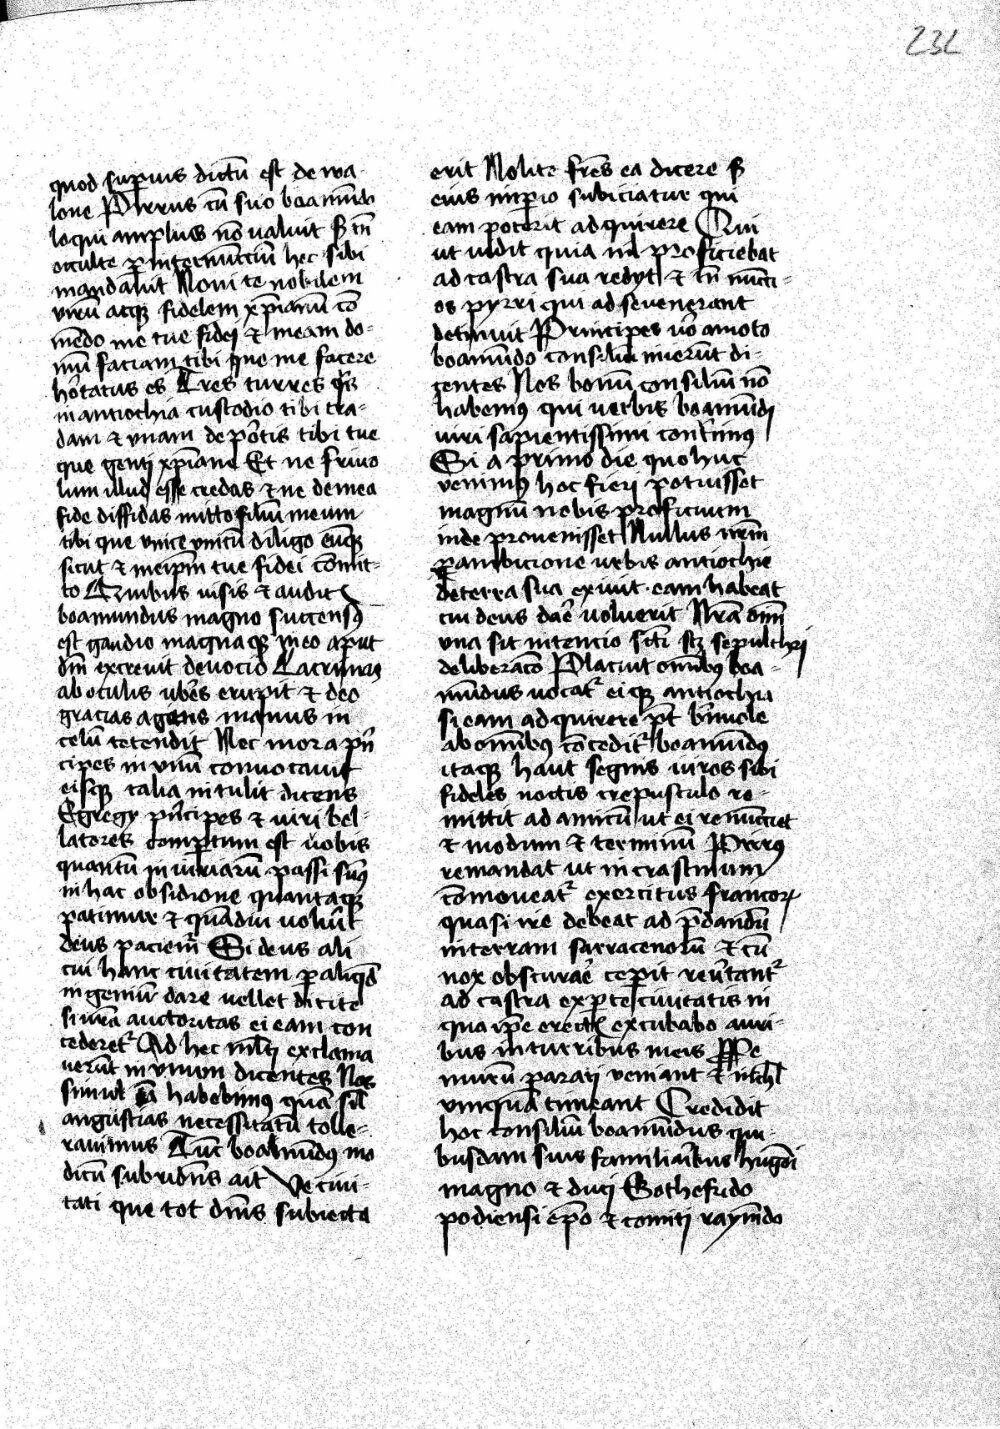 232
quod supius dictū est de wa-
lone Pirrus cū suo boamūdo
loqui amplius nō valuit sꝫ tn̄
occulte ꝑ internūcciū hec sibi
mandauit Noui te nobilem
virū atqꝫ fidelem xp̄ianū cō
mēdo me tue fidei ⁊ meam do-
mū faciam tibi que me facere
hortatus es Tres turres qͣs
in antiochia custodio tibi tra-
dam ⁊ vnam de portis tibi tue
que genti xp̄iane Et ne friuo
lum illud esse credas ⁊ ne de mea
fide diffidas mitto filiū meum
tibi que vnice vnicū diligo eūqꝫ
sicut ⁊ meip̄m tue fidei cōmit-
to Quibus visis ⁊ auditis
boamundus magno succensꝯ
est gaudio magnaqꝫ in eo aput
dm̄ excreuit deuocio Lacrimas
ab oculis vb̄es erupit ⁊ deo
gracias agens manus in
celū tetendit Nec mora pn̄
cipes in vnū conuocauit
eisqꝫ talia intulit dicens
Egregij pͥncipes ⁊ viri bel-
latores compertum est vobis
quantū iniuriarū passi sumꝯ
in hac obsidione quantaqꝫ
patimur ⁊ quādiu voluīt
deus paciem̄ Si deus ali
cui hanc ciuitatem ꝑ aliqd̄
ingeniū dare vellet dicite
si vr̄a auctoritas ei eam con
cederet᷑ Ad hec ml̄ti exclama
uerūt in vnum dicentes Nos
simul eā habebimus quā sil̄
angustias necessitatū tolle-
rauimus Tūc boamūdꝯ mo
dicū subridēs ait Ve ciui-
tati que tot dn̄is subiecta
erit Nolite fr̄es ea dicere sꝫ
eius inperio subiciatur qui
eam poterit adquirere Qui
ut vidit quia nil proficiebat
ad castra sua redijt ⁊ tn̄ nūcci-
os pyrri qui ad se venerant
detinuit Principes vo amoto
boamūdo consiliū inierūt di-
centes Nos bonū consiliū nō
habemꝯ qui verbis boamūdi
viri sapientissimi contͥimꝯ
Si a primo die quo huc
venimꝯ hoc fieri potuisset
magnū nobis proficuum
inde prouenisset Nullus nr̄m
ꝑ ambicione vrbis antiochie
de terra sua exiuit eam habeat
cui deus dare voluerit Nr̄a om̄
vna sit intencio sc̄ti scꝫ sepulchri
deliberacō Placuit omībꝯ boa-
mūdus vocat᷑ eiqꝫ antiochia
si eam adquirere pōt bn̄iuole
ab omībꝯ cōcedit᷑ boamūdꝯ
itaqꝫ haut segnis viros sibi
fideles noctis crepusculo re-
mittit ad amicū ut ei renūciet
⁊ modum ⁊ terminū Pirrꝯ
remandat ut in crastinum
cōmoueat᷑ exercitus francoꝝ
quasi ire debeat ad p̄dandū
in terram sarracenorū ⁊ cū
nox obscurare ceperit reūtant᷑
ad castra ex ꝑte ciuitatis in
qua ip̄e erectis excubabo auri-
bus in turribus meis Ꝓpe
murū parati veniant ⁊ nichil
vnquā timeant Credidit
hoc consiliū boamūdus qui-
busdam suis familiaribus hugoni
magno ⁊ duci Gothefrido
podiensi ep̄o ⁊ comiti raymūdo